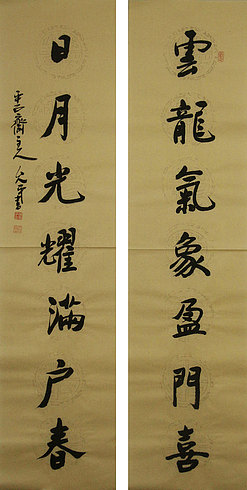 雲龍氣象盈門喜
日月光耀滿户春
齋主人